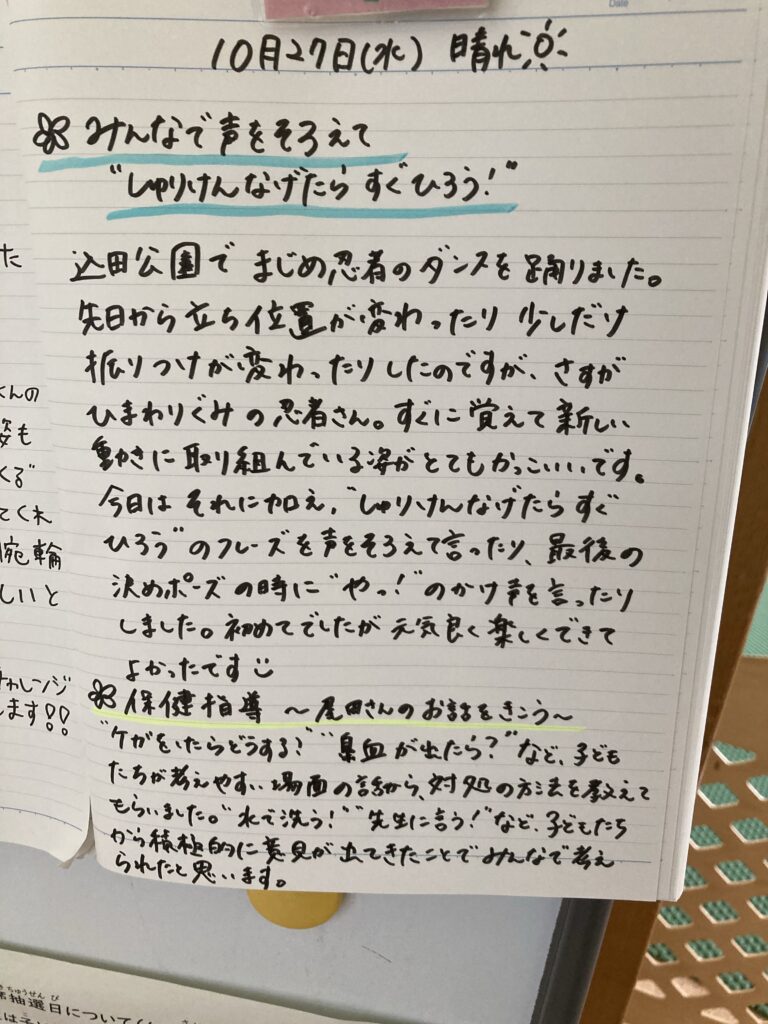 Date
10月27日(水) 晴れ
みんなで声をそろえて
"しゅりけんなげたら すぐひろう!"
込田公園で まじめ忍者のダンスを踊りました。
先日から立ち位置が変わったり 少しだけ
振りつけが変わったりしたのですが、さすが
ひまわりぐみの忍者さん。すぐに覚えて新しい
動きに取り組んでいる姿がとてもかっこいいです。
今日は それに加え、"しゅりけんなげたらすぐ
ひろう"のフレーズを声をそろえて言ったり、最後の
決めポーズの時に"やっ!"のかけ声を言ったり
しました。初めてでしたが 元気良く楽しくできて
よかったです
保健指導 〜尾田さんのお話をきこう〜
"ケガをしたらどうする?""鼻血が出たら?"など、子ども
たちが考えやすい場面の話から、対処の方法を教えて
もらいました。"水で洗う!""先生に言う!"など、子どもたち
から積極的に意見が出てきたことでみんなで考え
られたと思います。
た
くんの
姿も
くる
てくれ
腕輪
しいと
チャレンジ
します!!
ちゅうせん び
抽選日について